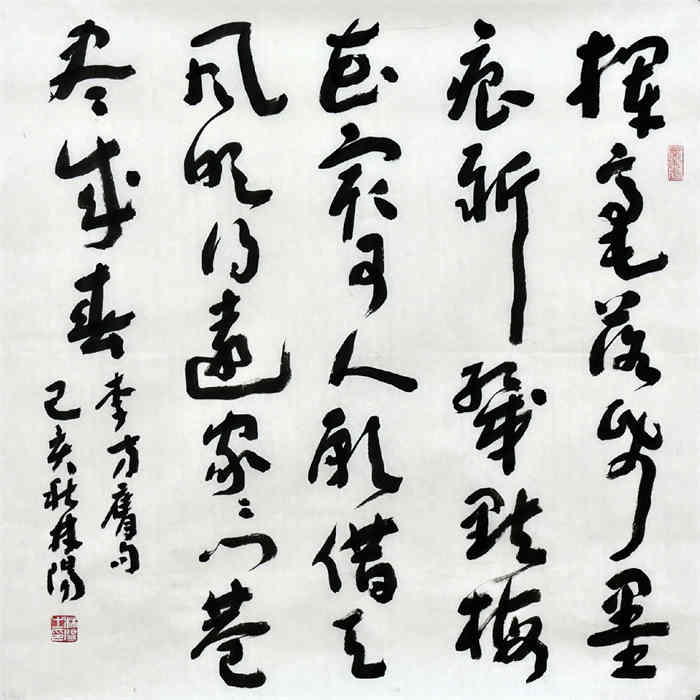 揮毫落紙墨
痕新幾點梅
花最可人願借天
風吹得遠家々門巷
盡成春
李方膺句
己亥秋